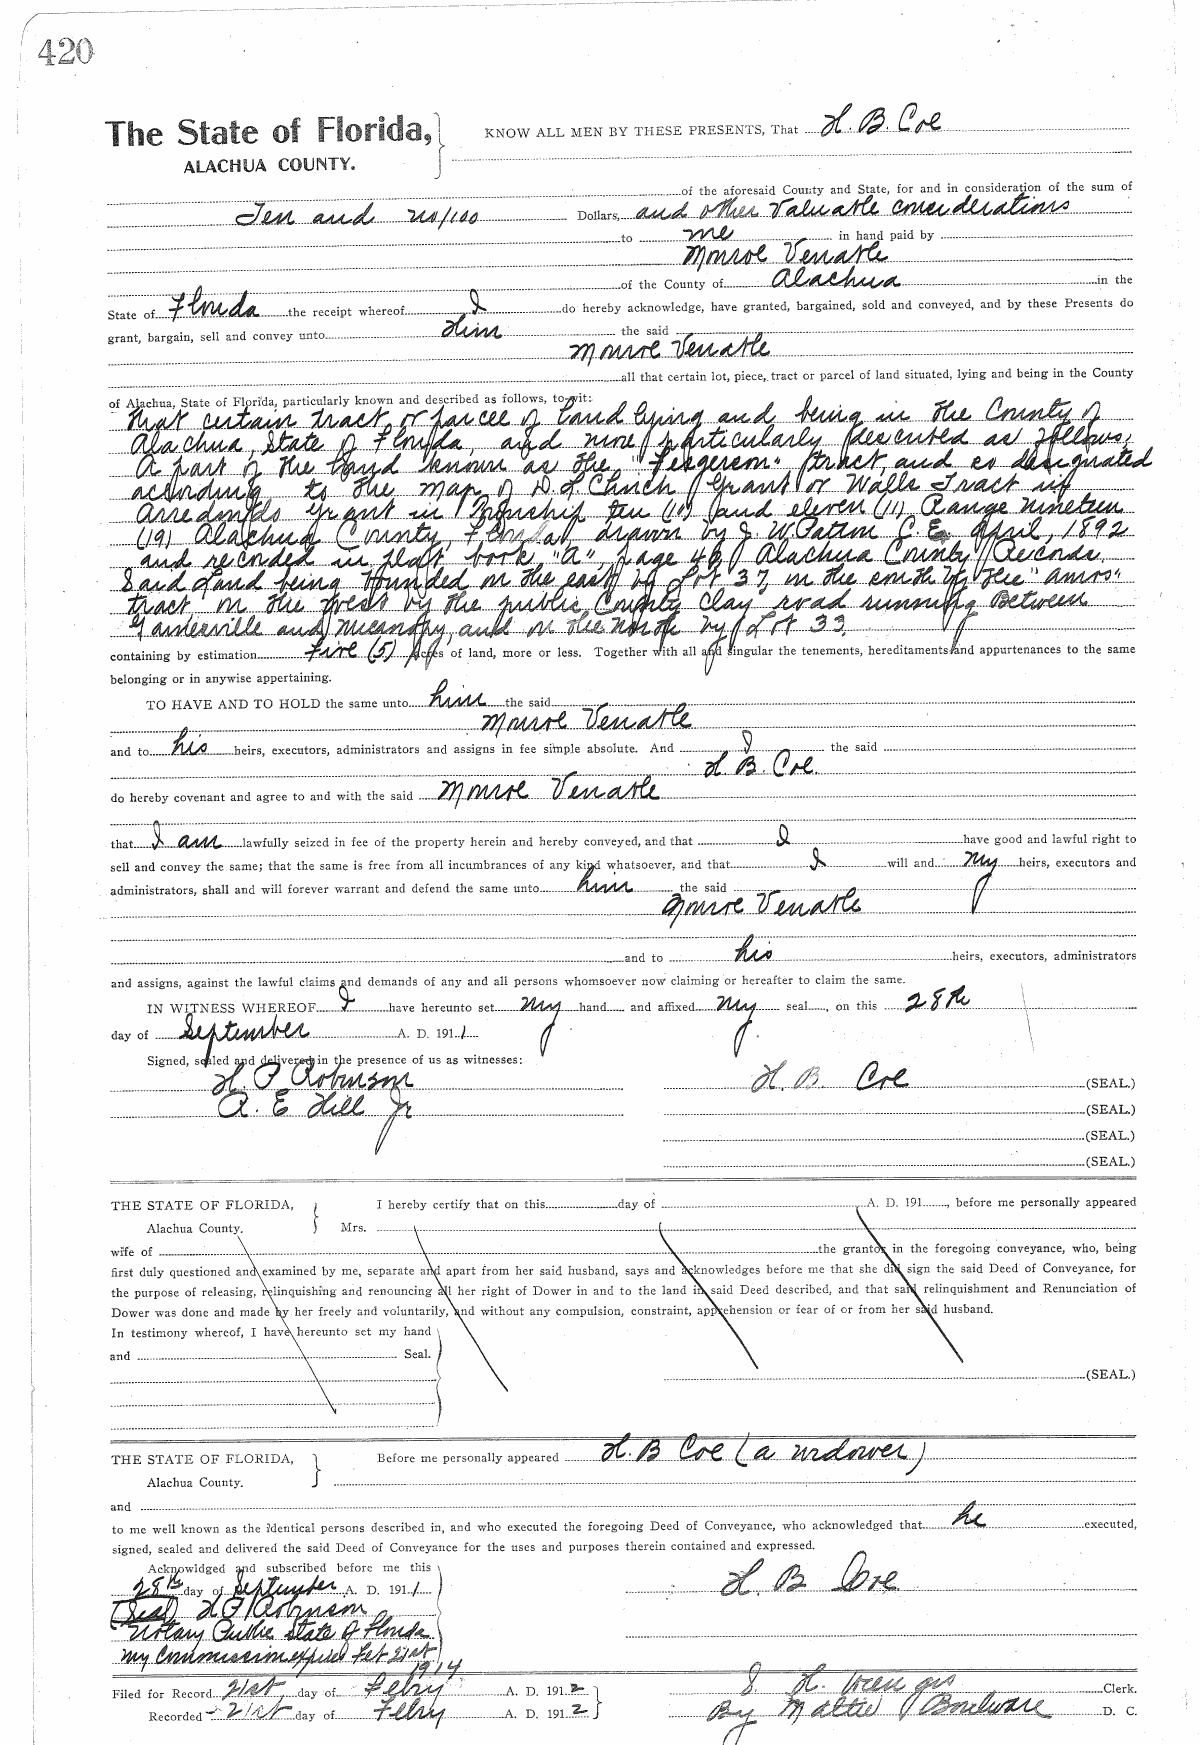 420
The State of Florida,
ALACHUA COUNTY.
KNOW ALL MEN BY THESE PRESENTS, That H. B. Coe
of the aforesaid County and State, for and in consideration of the sum of
Ten and no/100 Dollars, and other Valuable considerations
to me in hand paid by
Monroe Venable
of the County of Alachua in the
State of Florida the receipt whereof I do hereby acknowledge, have granted, bargained, sold and conveyed, and by these Presents do
grant, bargain, sell and convey unto him the said
Monroe Venable
all that certain lot, piece, tract or parcel of land situated, lying and being in the County
of Alachua, State of Florida, particularly known and described as follows, to-wit:
That certain tract or parcel of land lying and being in the County of
Alachua, State of Florida, and more particularly described as follows,
A part of the land known as the "Fergerson" tract, and so designated
according to the map of D. L. Clinch Grant or Walls Tract in
Arredondo Grant in Township ten (10) and eleven (11) Range nineteen
(19) Alachua County, Florida, drawn by J. W. Patton C. E. April, 1892
and recorded in plat book "A", page 46 Alachua County Records.
Said land being bounded on the east by Lot 37, on the south by the "Amos"
tract, on the west by the public County clay road running Between
Gainesville and Micanopy, and on the North by Lot 33.
containing by estimation Five (5) Acres of land, more or less. Together with all and singular the tenements, hereditaments and appurtenances to the same
belonging or in anywise appertaining.
TO HAVE AND TO HOLD the same unto him the said
Monroe Venable
and to his heirs, executors, administrators and assigns in fee simple absolute. And I the said
H. B. Coe.
do hereby covenant and agree to and with the said Monroe Venable
that I am lawfully seized in fee of the property herein and hereby conveyed, and that I have good and lawful right to
sell and convey the same; that the same is free from all incumbrances of any kind whatsoever, and that I will and my heirs, executors and
administrators, shall and will forever warrant and defend the same unto him the said
Monroe Venable
and to his heirs, executors, administrators
and assigns, against the lawful claims and demands of any and all persons whomsoever now claiming or hereafter to claim the same.
IN WITNESS WHEREOF I have hereunto set my hand and affixed my seal, on this 28th
day of September A. D. 1911
Signed, sealed and delivered in the presence of us as witnesses:
H. P. Robinson
H. B Coe (SEAL.)
A. E Hill Jr
(SEAL.)
(SEAL.)
(SEAL.)
THE STATE OF FLORIDA,
Alachua County.
I hereby certify that on this day of A. D. 191, before me personally appeared
Mrs.
wife of the grantor in the foregoing conveyance, who, being
first duly questioned and examined by me, separate and apart from her said husband, says and acknowledges before me that she did sign the said Deed of Conveyance, for
the purpose of releasing, relinquishing and renouncing all her right of Dower in and to the land in said Deed described, and that said relinquishment and Renunciation of
Dower was done and made by her freely and voluntarily, and without any compulsion, constraint, apprehension or fear of or from her said husband.
In testimony whereof, I have hereunto set my hand
and Seal.
(SEAL.)
THE STATE OF FLORIDA,
Alachua County.
Before me personally appeared H. B Coe (a widower)
and
to me well known as the identical persons described in, and who executed the foregoing Deed of Conveyance, who acknowledged that he executed,
signed, sealed and delivered the said Deed of Conveyance for the uses and purposes therein contained and expressed.
Acknowldged and subscribed before me this
28th day of September A. D. 1911
H B Coe
(Seal) H P Robinson
Notary Public State of Florida
My Commission expires Feb 21st
1914
Filed for Record 21st day of Febry A. D. 1912
S. H. Clerk.
Recorded 21st day of Febry A. D. 1912
By Mattie Boulware D. C.